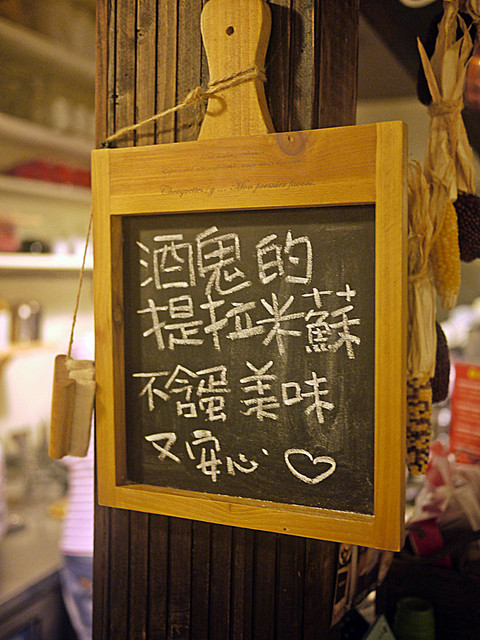 酒鬼的
提拉米蘇
不含蛋美味
又安心♡